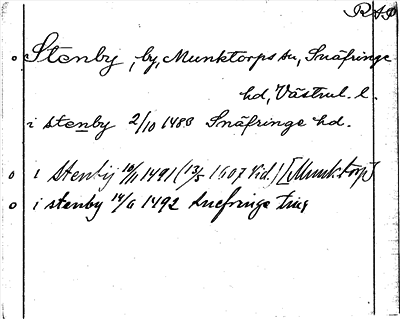 RAP
Stenby, by, Munktorps sn, Snäfringe
hd, Västml. l.
i stenby 2/10 1488 Snäfringe hd.
i Stenby 10/11 1491 (13/5 1607 Vid.) [Munktorp]
i stenby 14/6 1492 snefringe ting